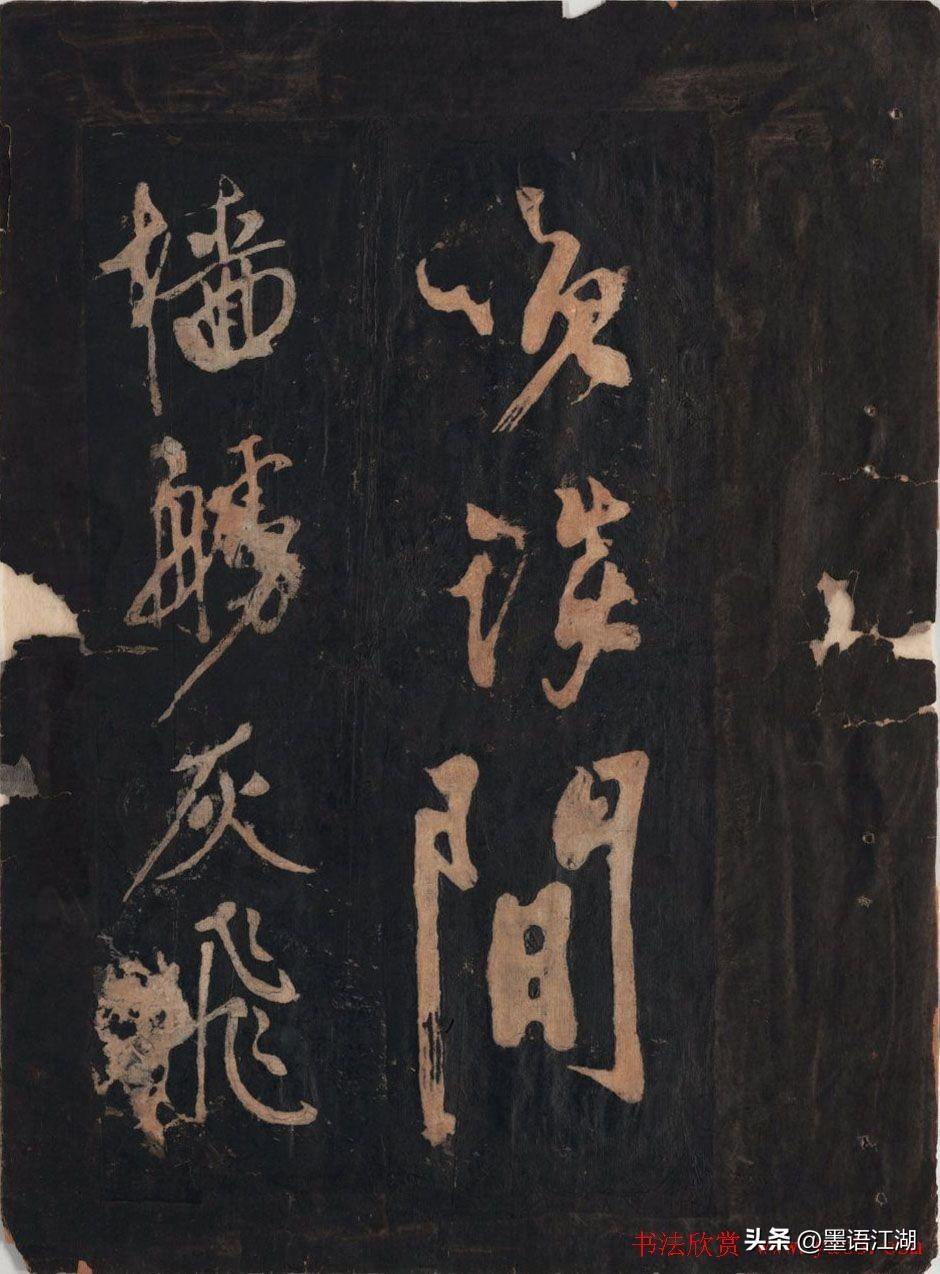 笑談間
檣艣灰飛
书法欣赏
头条 @墨语江湖